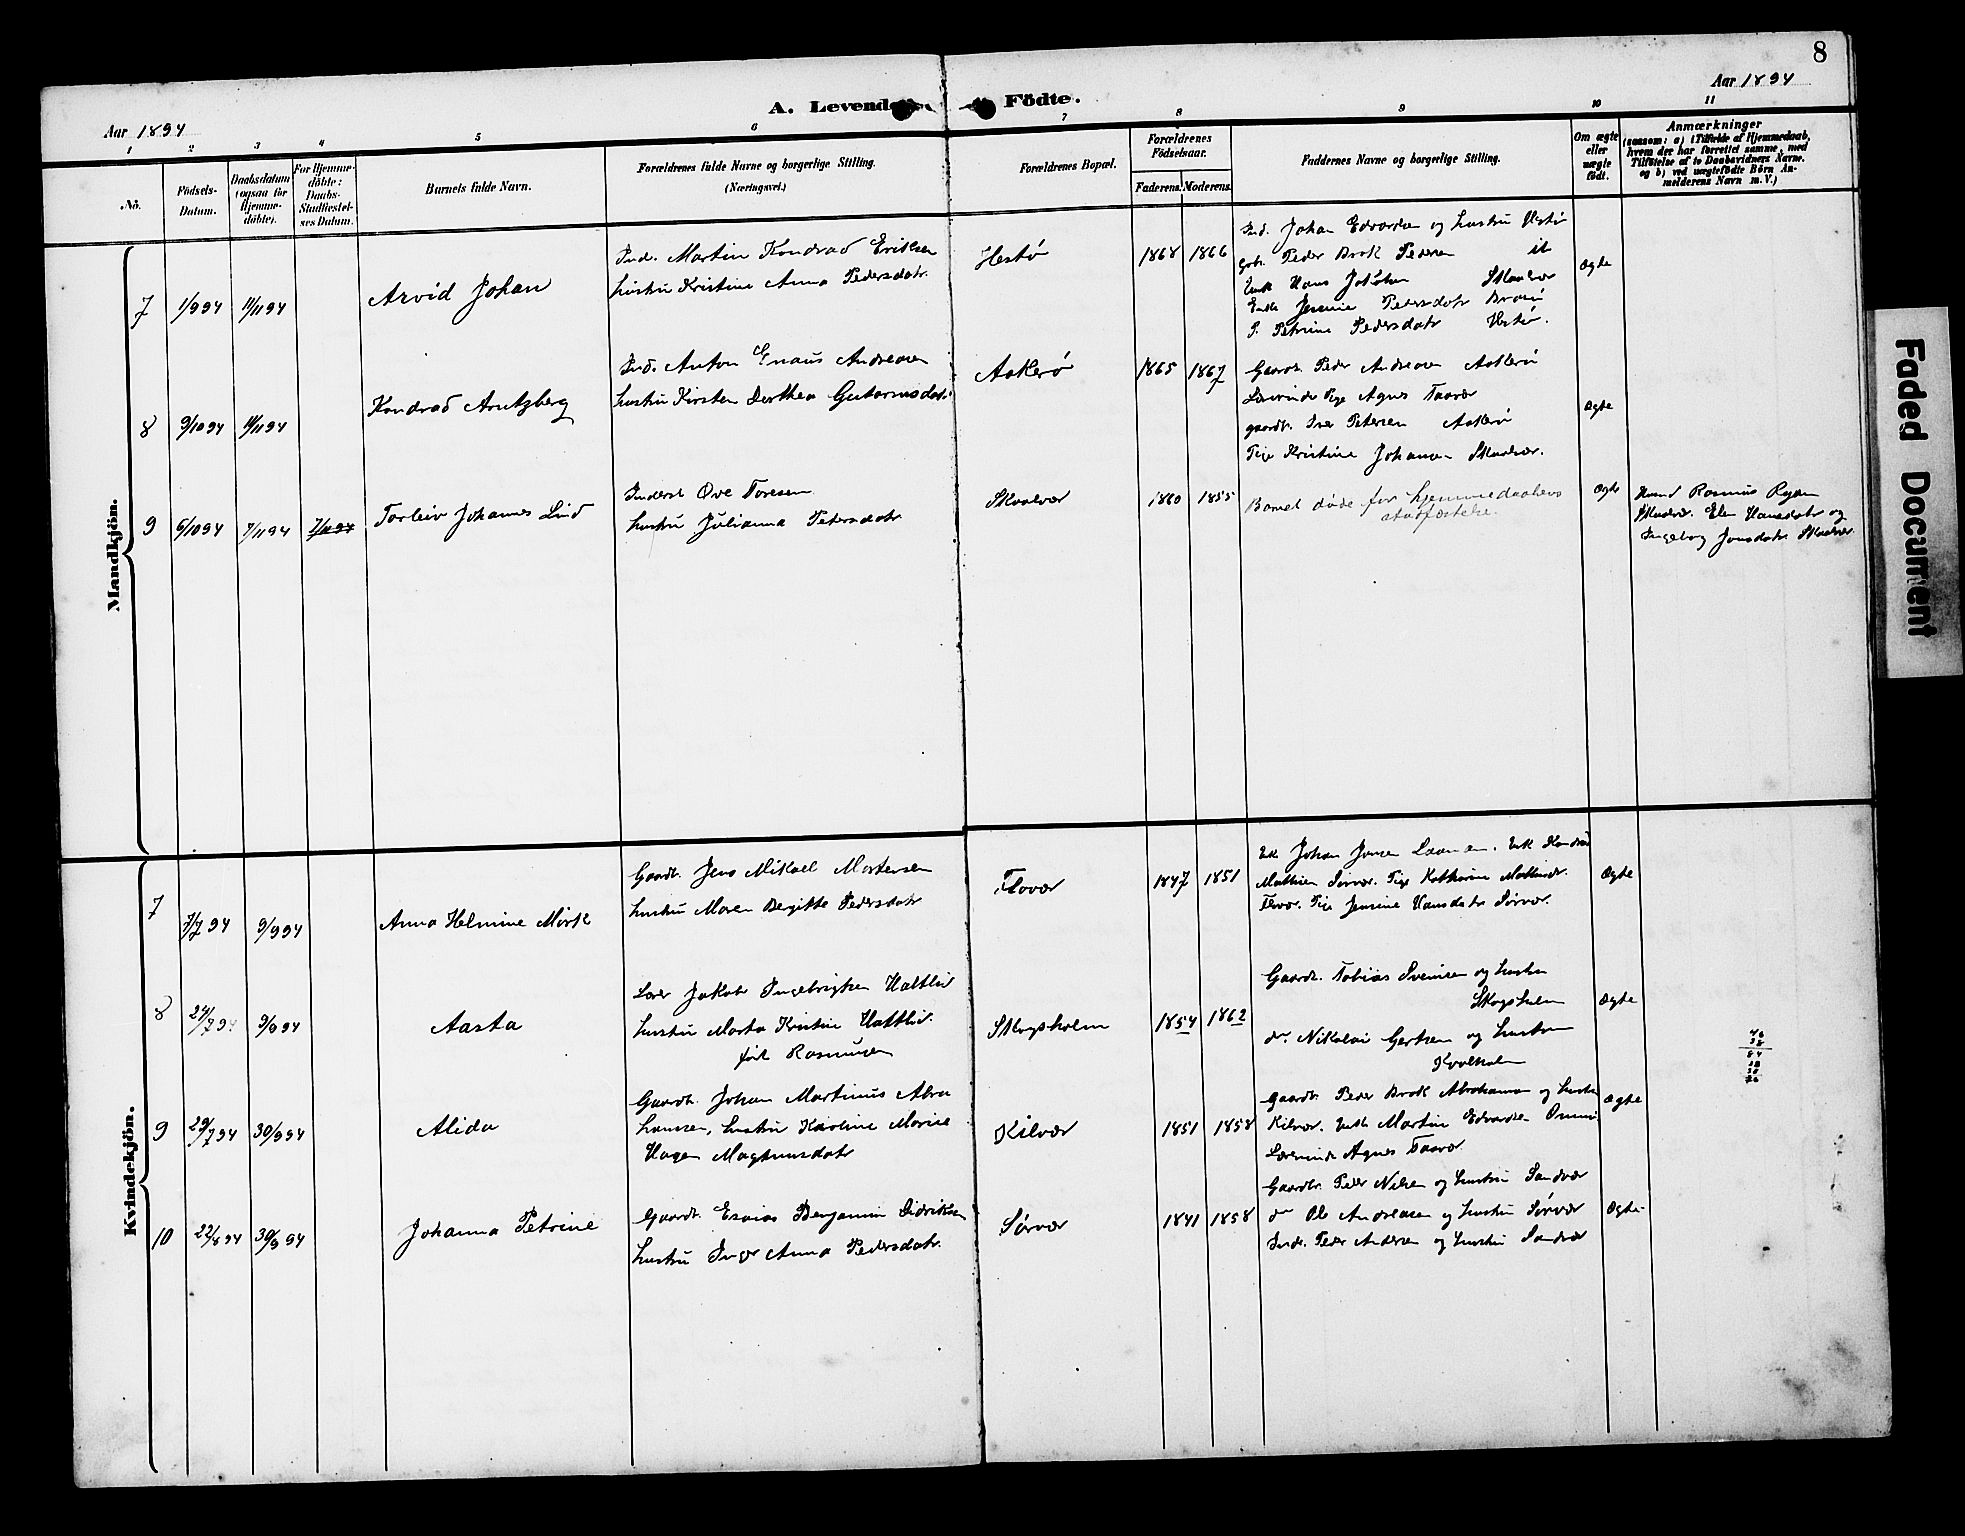 8
Aar 1894
Aar 1894
A. Levende Födte.
1 2 3 4 5 6 7 8 9 10 11
No.
Födsels-
Datum.
Daabsdatum
(ogsaa for
Hjemme-
döbte).
For Hjemme-
döbte:
Daabs-
Stadfæstel-
ses Datum.
Barnets fulde Navn.
Forældrenes fulde Navne og borgerlige Stilling.
(Næringsvei.)
Forældrenes Bopæl.
Forældrenes
Födselsaar.
Faderens.
Moderens.
Faddernes Navne og borgerlige Stilling.
Om ægte
eller
uægte
födt.
Anmærkninger
(saasom: a) i Tilfælde af Hjemmedaab,
hvem der har forrettet samme, med
Tilföielse af to Daabsvidners Navne.
og b) ved uægtefödte Börn An-
melderens Navn m. V.)
Mandkjön.
7
1/9 94
11/11 94
Arvid Johan
Ind. Martin Kondrad Eriksen
hustru Kristine Anna Pedersdatr
Hestø
1868
1866
Ind. Johan Edvardsen og hustru Hestø
Peder Brok Pedersen
Hans
Enke Jensine Pedersdatr
P. Petrine Pedersdatr Hestø.
Ægte
8
9/10 94
11/11 94
Kondrad Arntzberg
Ind. Anton Enaus Andreasen
hustru Kirsten Dorthea Gutormsdatr
Askerø
1865
1867
Gaardt. Peder Andreasen Askerø
Lærerinde Pige Agnes Taavær
gaardt. Iver Petersen Askerø
Pige Kristine Johansen Skaalvær.
Ægte
9
5/10 94
7/11 94
7/11 94
Torleiv Johannes Lind
Inderst Ove Toresen
hustru Julianna Petersdatr
Skaalvær
1860
1855
Barnet døde før hjemmedaabens
stadfæstelse.
Ægte
Rasmus
Skaalvær. Elen Hansdatr og
Ingeborg Jonsdatr Skaalvær
Kvindekjön.
7
7/7 94
9/9 94
Anna Helmine Mørk
Gaardt. Jens Mikael Mortensen
hustru Maren Bergitte Pedersdatr
Flovær
1847
1851
Johan Jensen
Mathisen Sørvær. Pige Katharine
Flovær. Pige Jensine Hansdatr Sørvær.
Ægte
8
24/7 94
9/9 94
Aasta
Lærer Jakob Ingebrigtsen Hatlid
hustru Marta Kristine Hattlid.
født Rasmusen
Skogsholm
1854
1862
Gaardt. Tobias Svensen og hustru
Skogsholm
do. Nikolai Gertsen og hustru
Kvalholm
Ægte
9
29/7 94
30/9 94
Alida
Gaardt. Johan Martinus Abra
hamsen, hustru Karoline Marie
Hagen Magnusdatr
Kilvær
1851
1858
Gaardt. Peder Brok Abrahamsen og hustru
Kilvær. Martin Edvardsen
Lærerinde Agnes Taavær.
Ægte
10
22/8 94
30/9 94
Johanna Petrine
Gaardt. Esaias Benjamin Didriksen
hustru Inger Anna Pedersdatr.
Sørvær
1841
1858
Gaardbr. Peder Nilsen og hustru Sandvær
do Ole Andreasen og hustru Sørvær
Indr. Peder Andersen og hustru Sandvær
Ægte
Faded Document